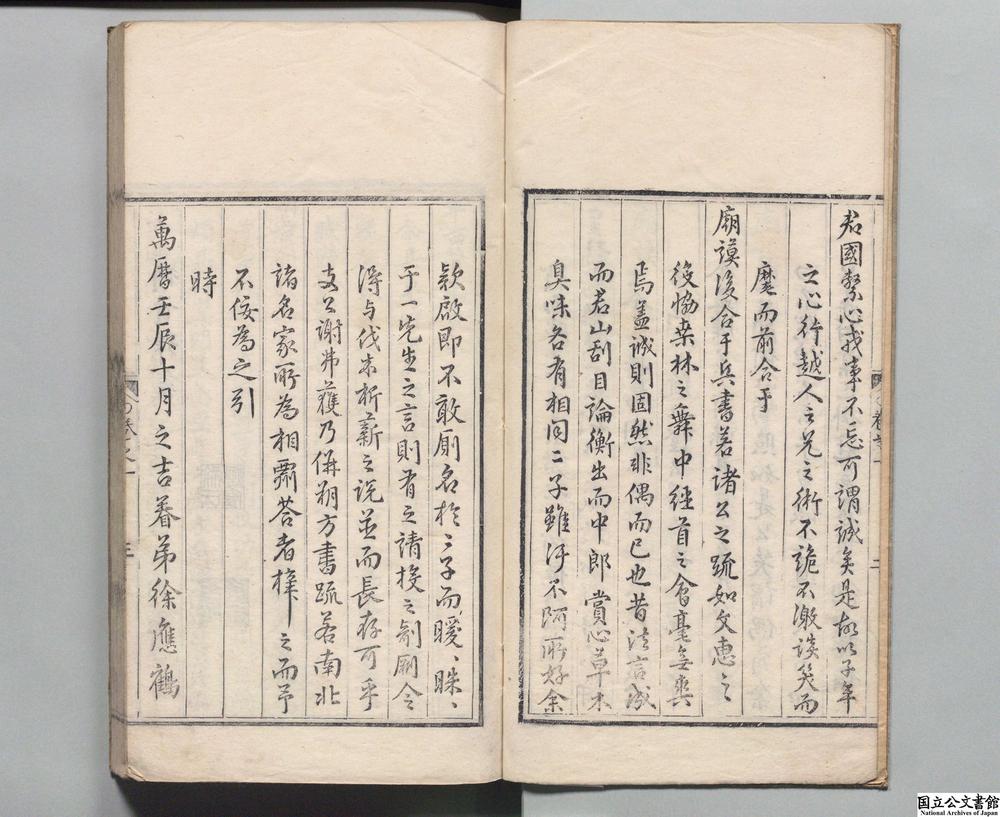 君國繫心我事不忘可謂誠矣是故以子年
之心行越人之兄之術不詭不激談笑而
麾而前合于
廟謨後合于兵書若諸公之疏如文惠之
後恊桒林之舞中經首之會毫無爽
焉盖誠則固然非偶而已也昔法言成
而君山刮目論衡出而中郎賞心草木
臭味各有相同二子雖汙不阿所好余
欵啟即不敢厠名於二子而暖〻昧〻
于一先生之言則有之請授之剞劂令
得与伐木析薪之說並而長存可乎
支公謝弗獲乃併朔方書疏若南北
諸名家所為相酬荅者梓之而予
不佞為之引
時
萬曆壬辰十月之吉眷弟徐應鶴
卷之一
二
卷之一
三
国立公文書館
National Archives of Japan